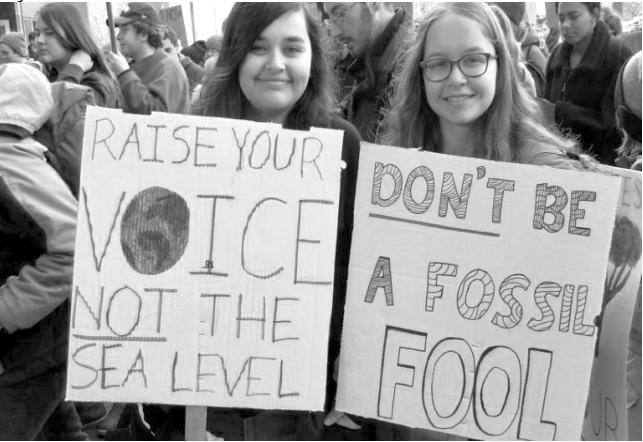 RAISE YOUR
VOICE
NOT THE
SEA LEVEL
DON'T BE
A FOSSIL
FOOL